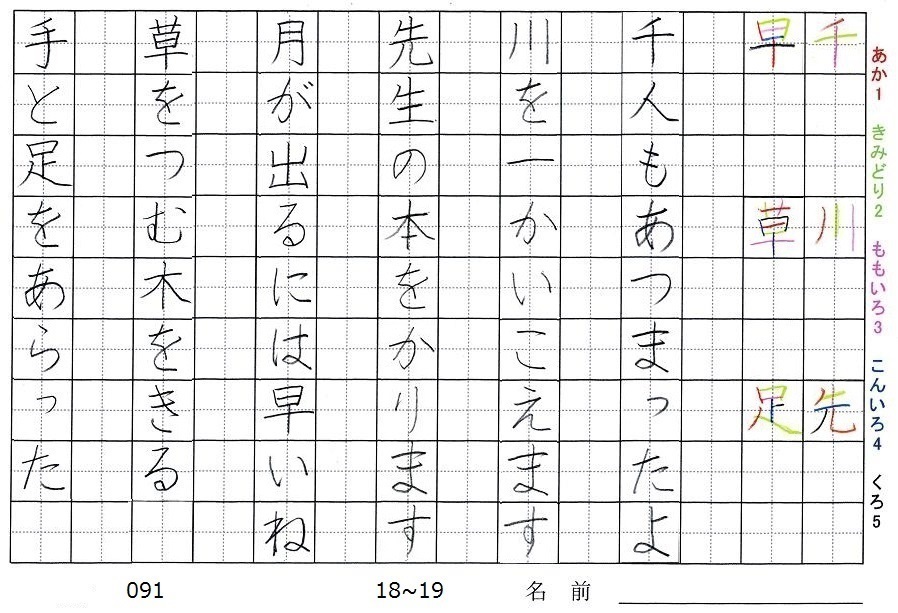 あか1 きみどり2 ももいろ3 こんいろ4 くろ5
千 川 先
早 草 足
千人もあつまったよ
川を一かいこえます
先生の本をかります
月が出るには早いね
草をつむ木をきる
手と足をあらった
091 18~19 名前